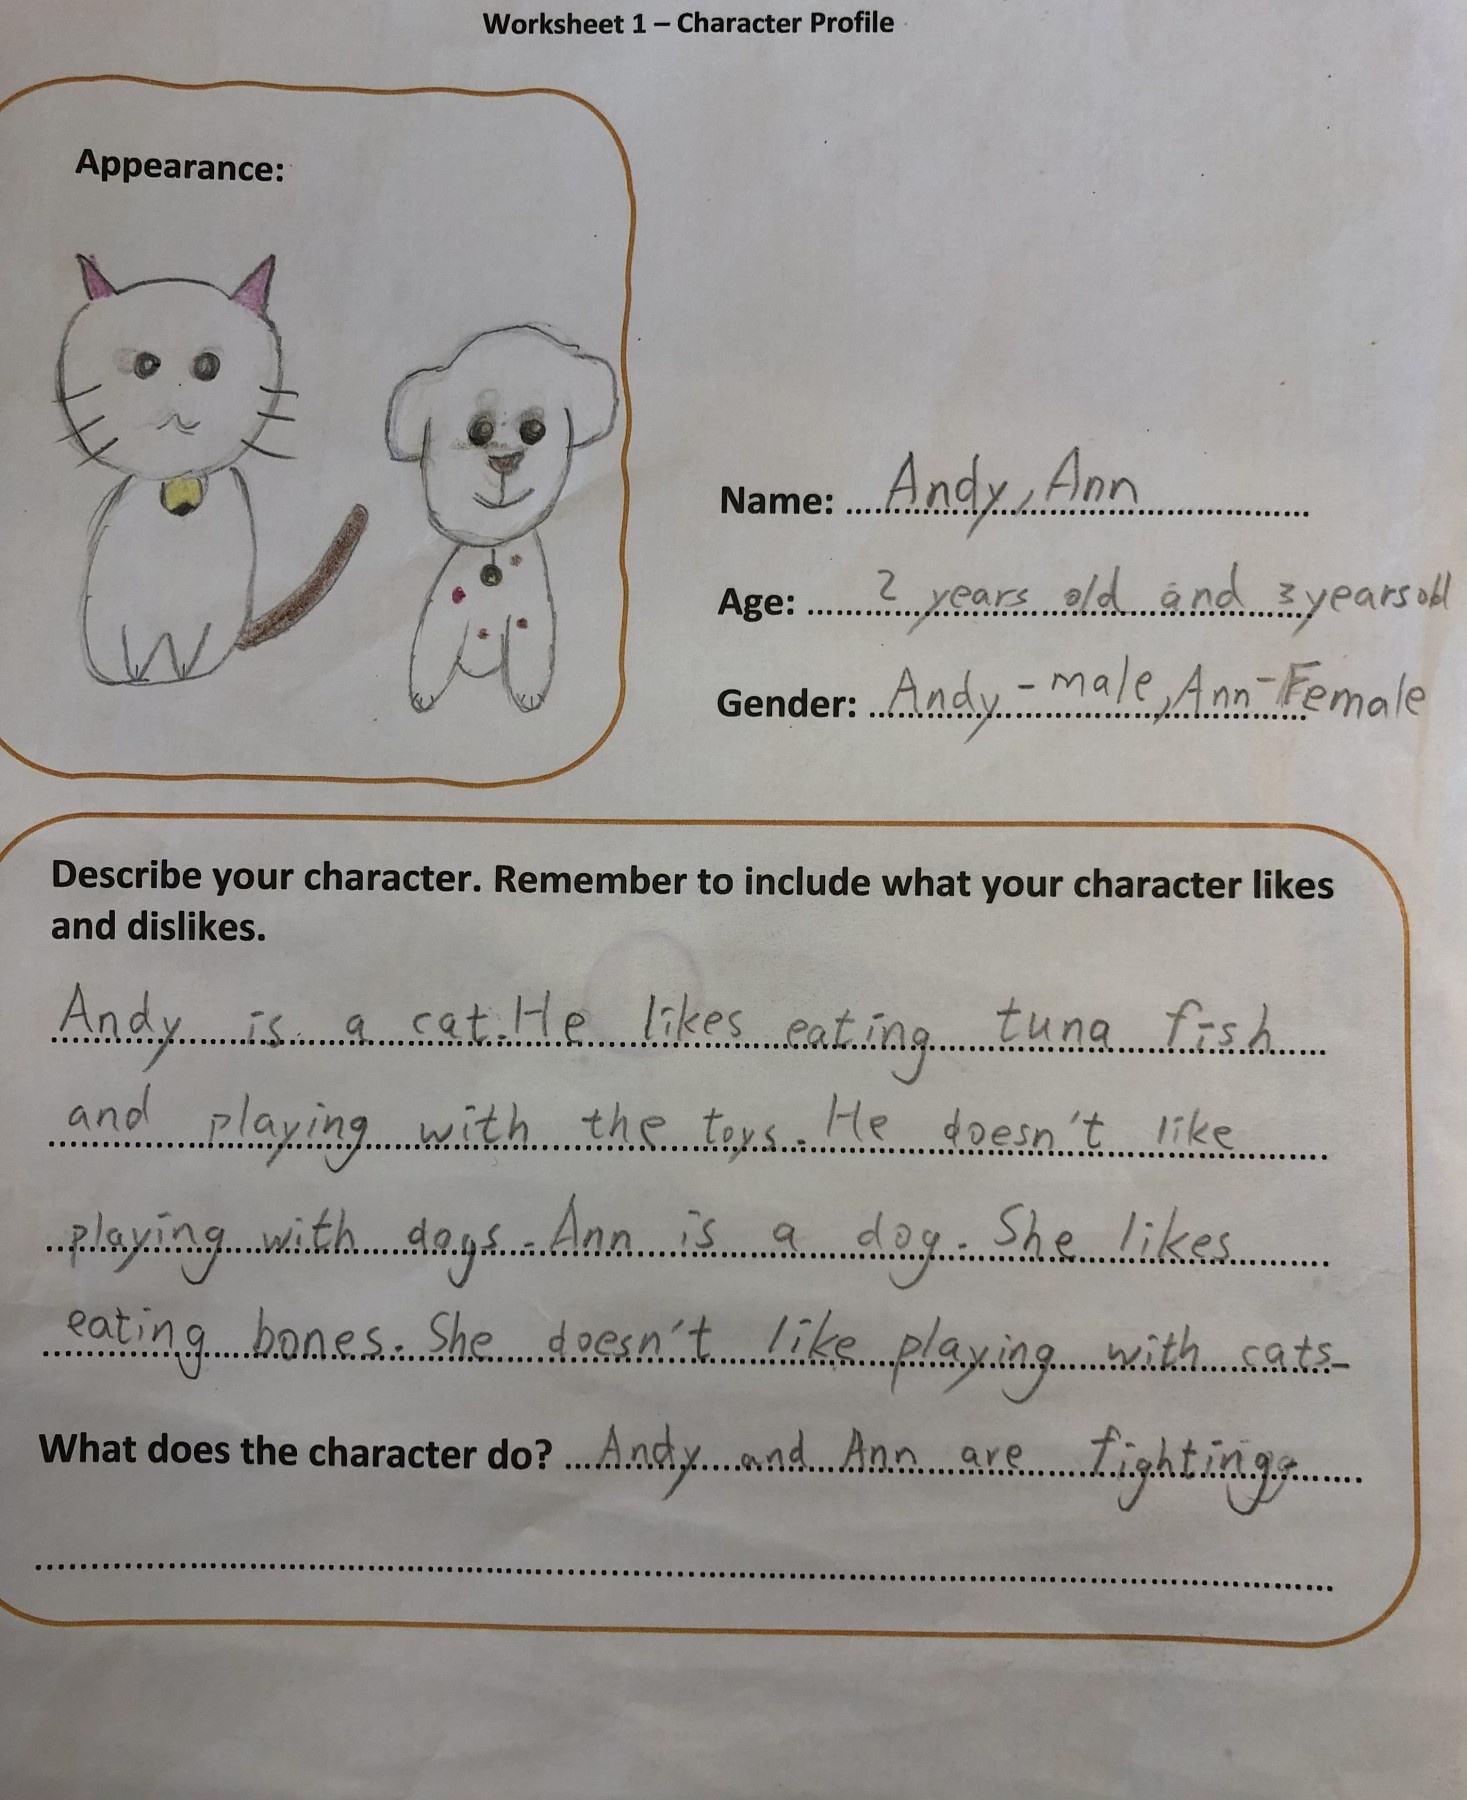 Worksheet 1 – Character Profile
Appearance:
Name: Andy, Ann
Age: 2 years old and 3 years old
Gender: Andy - male, Ann - Female
Describe your character. Remember to include what your character likes
and dislikes.
Andy is a cat. He likes eating tuna fish
and playing with the toys. He doesn't like
playing with dogs. Ann is a dog. She likes
eating bones. She doesn't like playing with cats.
What does the character do? Andy and Ann are fighting.